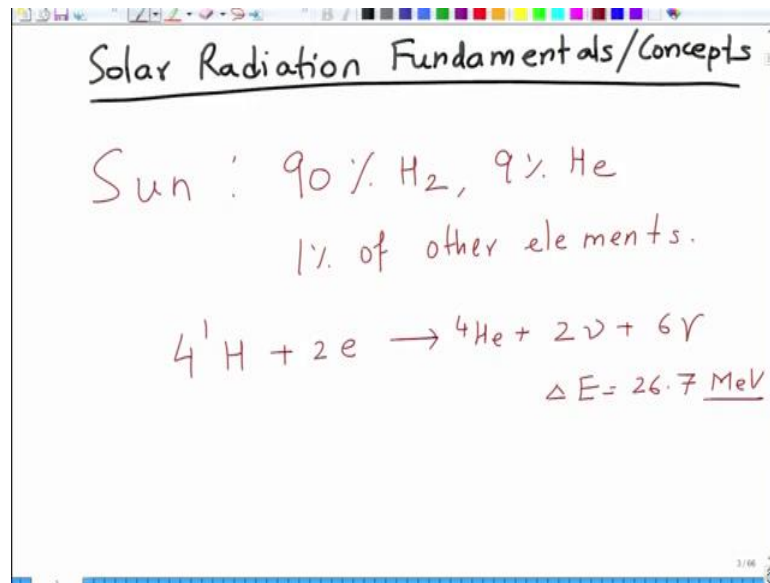 Solar Radiation Fundamentals/Concepts
Sun : 90% H₂, 9% He
1% of other elements.
4¹H + 2e → ⁴He + 2ν + 6γ
ΔE = 26.7 MeV
3/66